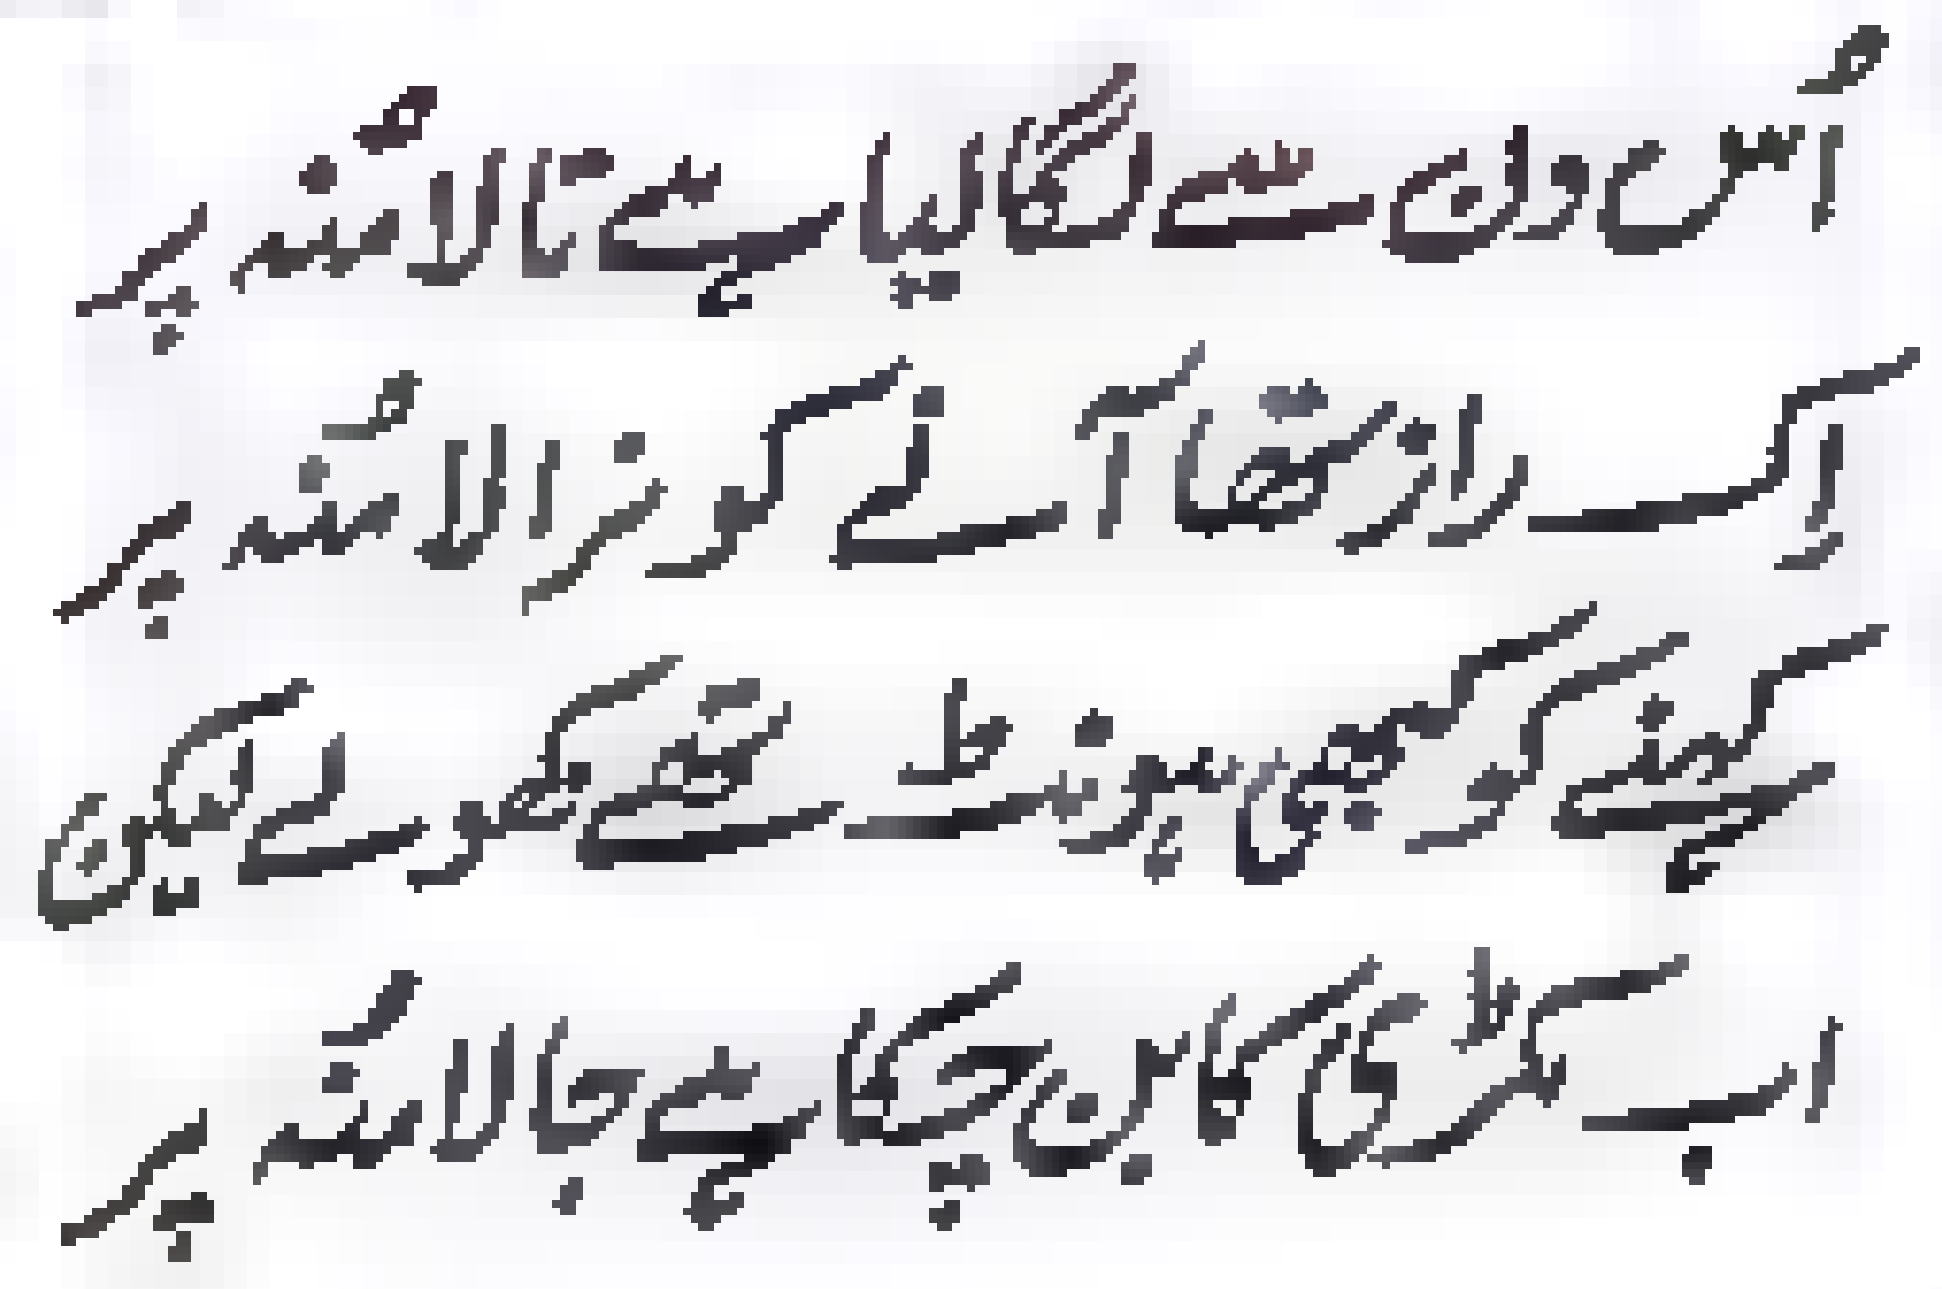 اُس دن سے لگا لیا ہے تالا مُنہ پر
اِک راز تھا آنے کو نرالا مُنہ پر
کہنے کو کبھی ہونٹ تھے کھولے لیکن
اب مکڑی کا بن چکا ہے جالا مُنہ پر